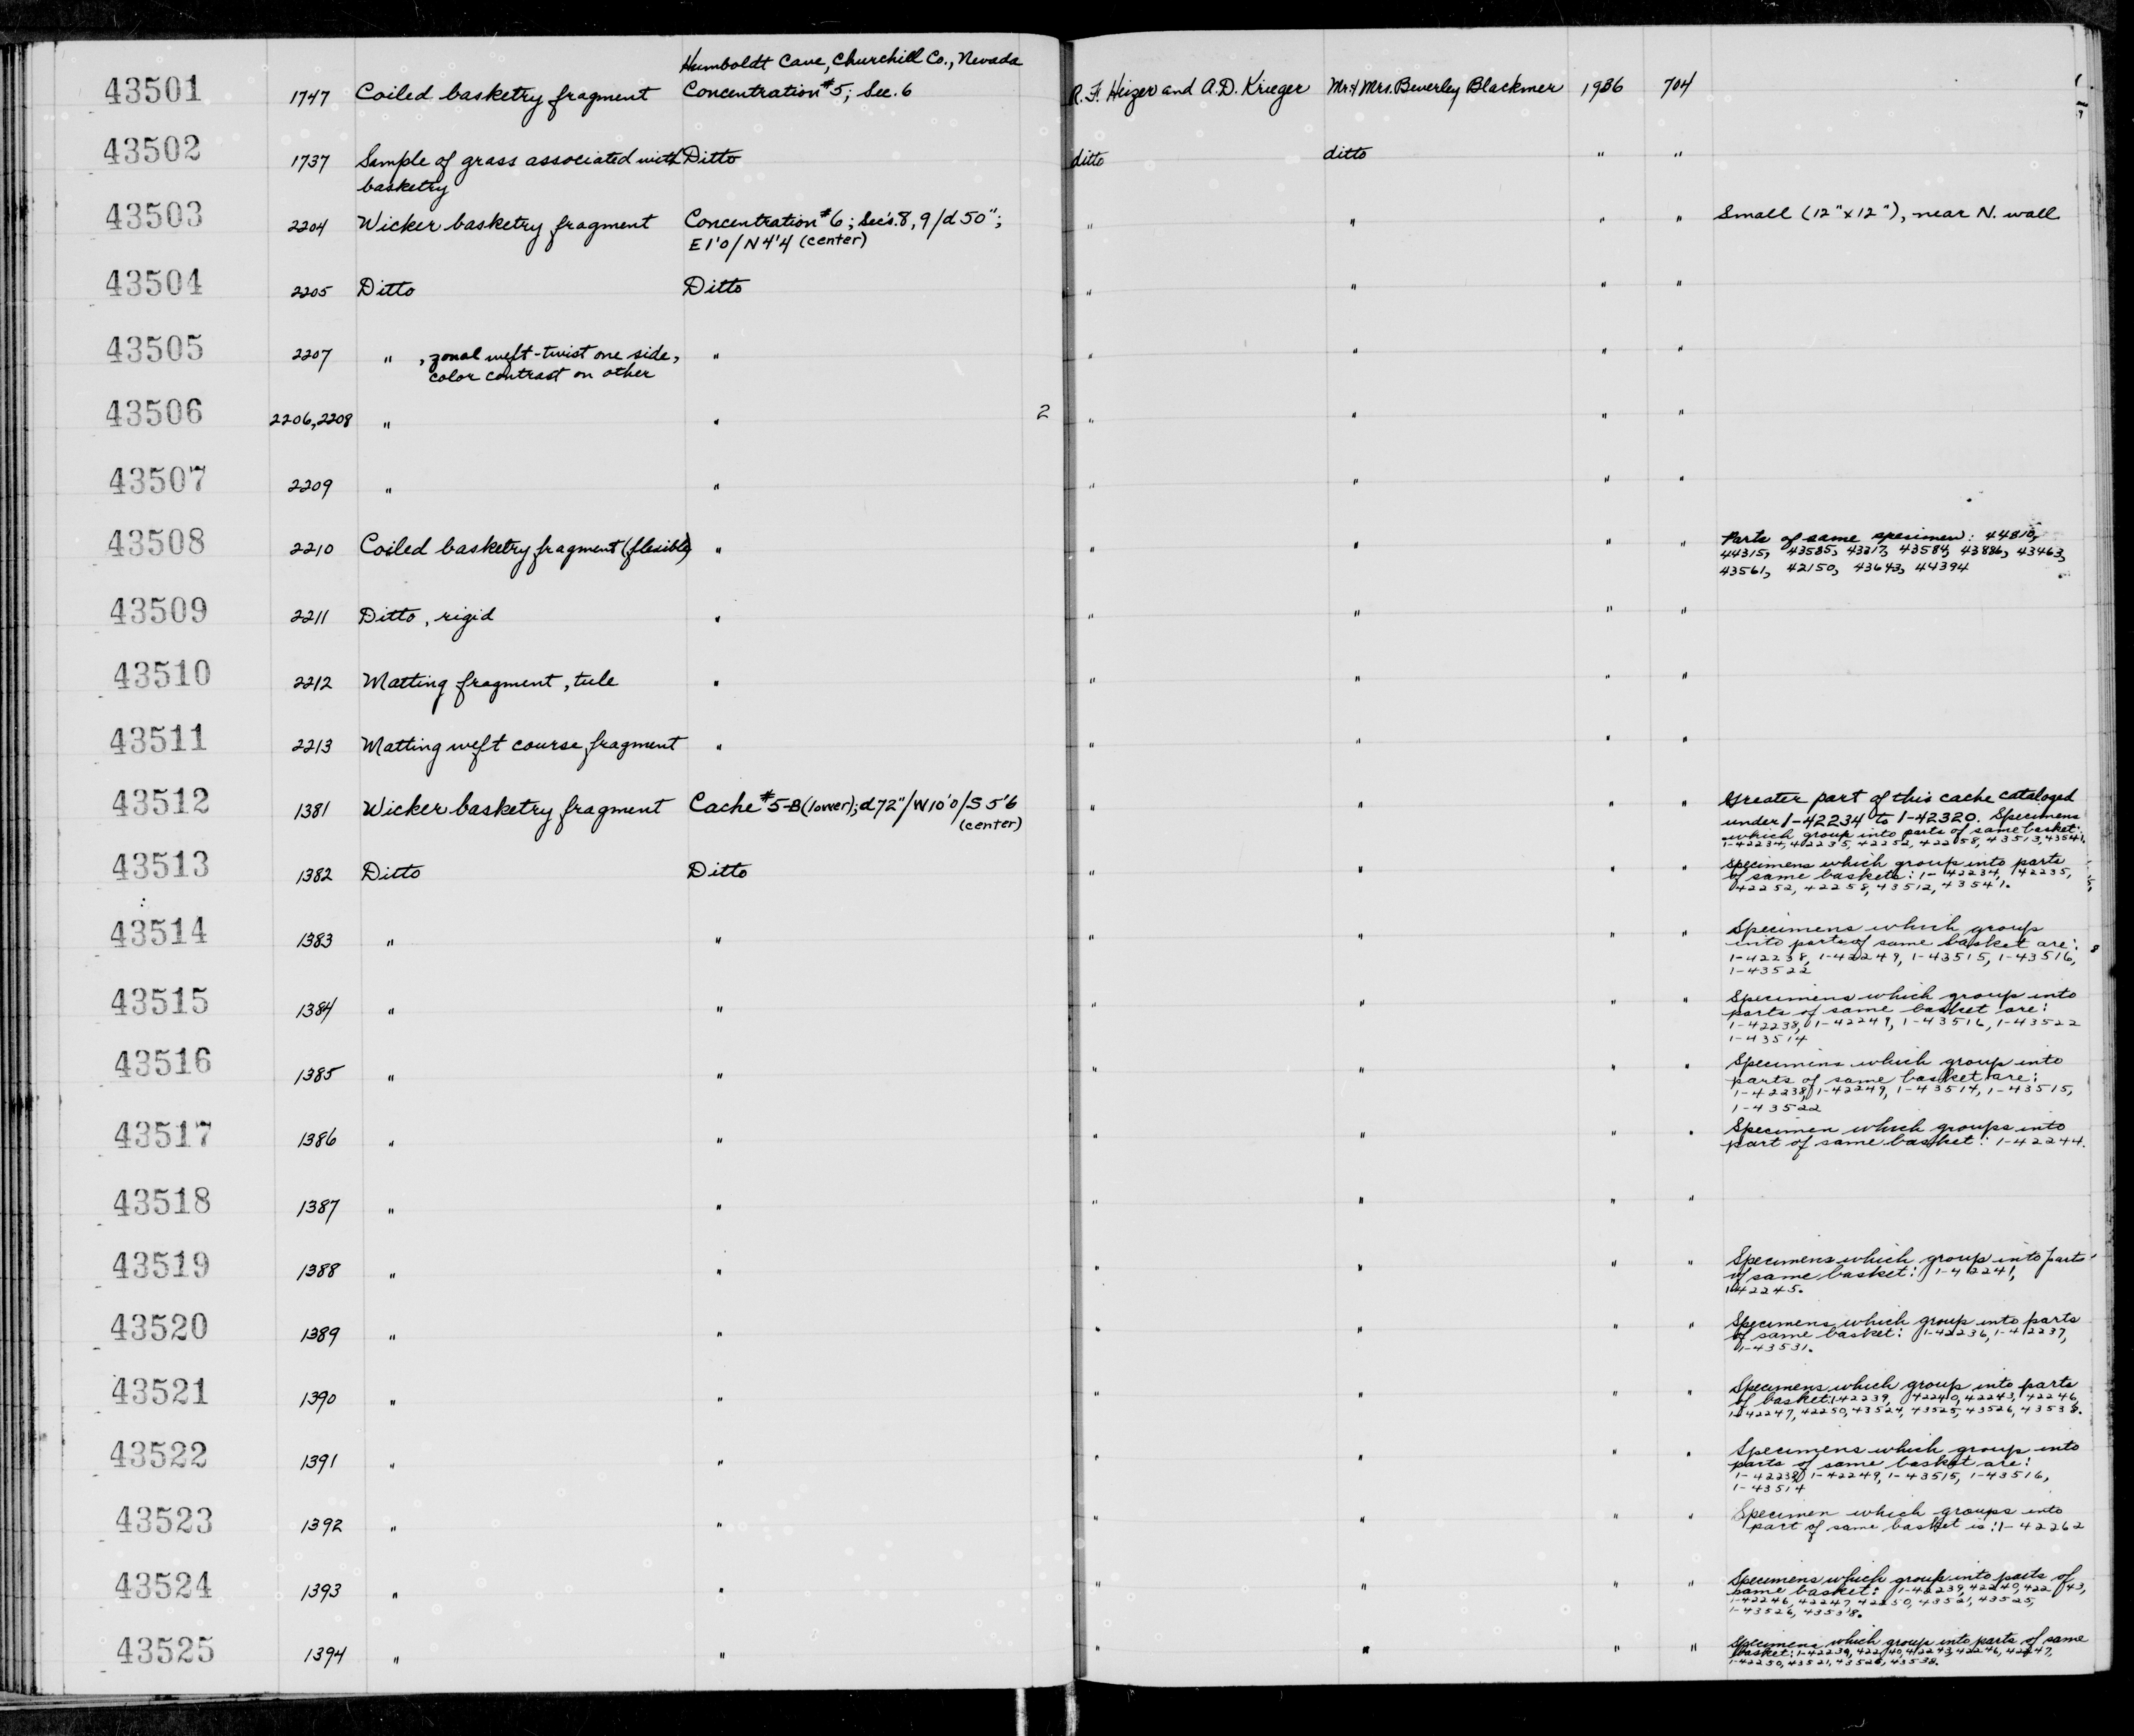 Humboldt Cave, Churchill Co., Nevada
43501 1747 Coiled basketry fragment Concentration #5; Sec. 6 R. F. Heizer and A.D. Krieger Mr. & Mrs. Beverley Blackmer 1936 704
43502 1737 Sample of grass associated with Ditto ditto ditto " "
basketry
43503 2204 Wicker basketry fragment Concentration #6; Sec's. 8, 9/d 50"; " " " " Small (12" x 12"), near N. wall
E1'0/N4'4 (center)
43504 2205 Ditto Ditto " " " "
43505 2207 " , zonal weft-twist one side, " " " " "
color contrast on other
43506 2206, 2208 " " 2 " " " "
43507 2209 " " " " " "
43508 2210 Coiled basketry fragment (flexible) " " " " " Parts of same specimen: 44810,
44315, 43585, 43217, 43584, 43886, 43463,
43561, 42150, 43643, 44394
43509 2211 Ditto, rigid " " " " "
43510 2212 Matting fragment, tule " " " " "
43511 2213 Matting weft course fragment " " " " "
43512 1381 Wicker basketry fragment Cache #5-B (lower); d72"/W10'0/S5'6 " " " " Greater part of this cache cataloged
(center) under 1-42234 to 1-42320. Specimens
which group into parts of same basket:
1-42234, 42235, 42252, 42258, 43513, 43541.
43513 1382 Ditto Ditto " " " " Specimens which group into parts
of same baskets: 1-42234, 42235,
42252, 42258, 43512, 43541.
43514 1383 " " " " " " Specimens which group
into parts of same basket are:
1-42238, 1-42249, 1-43515, 1-43516,
1-43522
43515 1384 " " " " " " Specimens which group into
parts of same basket are:
1-42238, 1-42249, 1-43516, 1-43522
1-43514
43516 1385 " " " " " " Specimens which group into
parts of same basket are:
1-42238, 1-42249, 1-43514, 1-43515,
1-43522
43517 1386 " " " " " " Specimen which groups into
part of same basket: 1-42244.
43518 1387 " " " " " "
43519 1388 " " " " " " Specimens which group into parts
of same basket: 1-42241,
1-42245.
43520 1389 " " " " " " Specimens which group into parts
of same basket: 1-42236, 1-42237,
1-43531.
43521 1390 " " " " " " Specimens which group into parts
of basket: 1-42239, 42240, 42243, 42246,
1-42247, 42250, 43524, 43525, 43526, 43538.
43522 1391 " " " " " " Specimens which group into
parts of same basket are:
1-42238, 1-42249, 1-43515, 1-43516,
1-43514
43523 1392 " " " " " " Specimen which groups into
part of same basket is: 1-42262
43524 1393 " " " " " " Specimens which group into parts of
same basket: 1-42239, 42240, 42243,
1-42246, 42247, 42250, 43521, 43525,
1-43526, 43538.
43525 1394 " " " " " " Specimens which group into parts of same
basket: 1-42239, 42240, 42243, 42246, 42247,
1-42250, 43521, 43526, 43538.